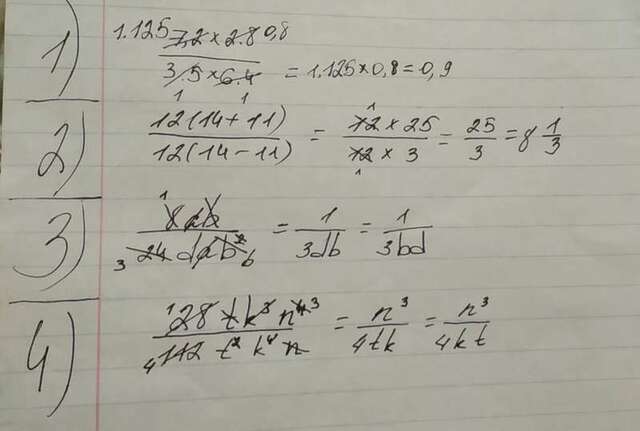 1) 1.125 7,2 × 2.8 0,8 / 3.5 × 6.4 = 1.125 × 0,8 = 0,9
1 1
2) 12(14 + 11) / 12(14 - 11) = 1 12 × 25 / 12 × 3 1 = 25 / 3 = 8 1/3
3) 1 8ab / 3 24 dab² b = 1 / 3db = 1 / 3bd
4) 1 28 t k³ n⁴ ³ / 4 112 t² k⁴ n = n³ / 4tk = n³ / 4kt